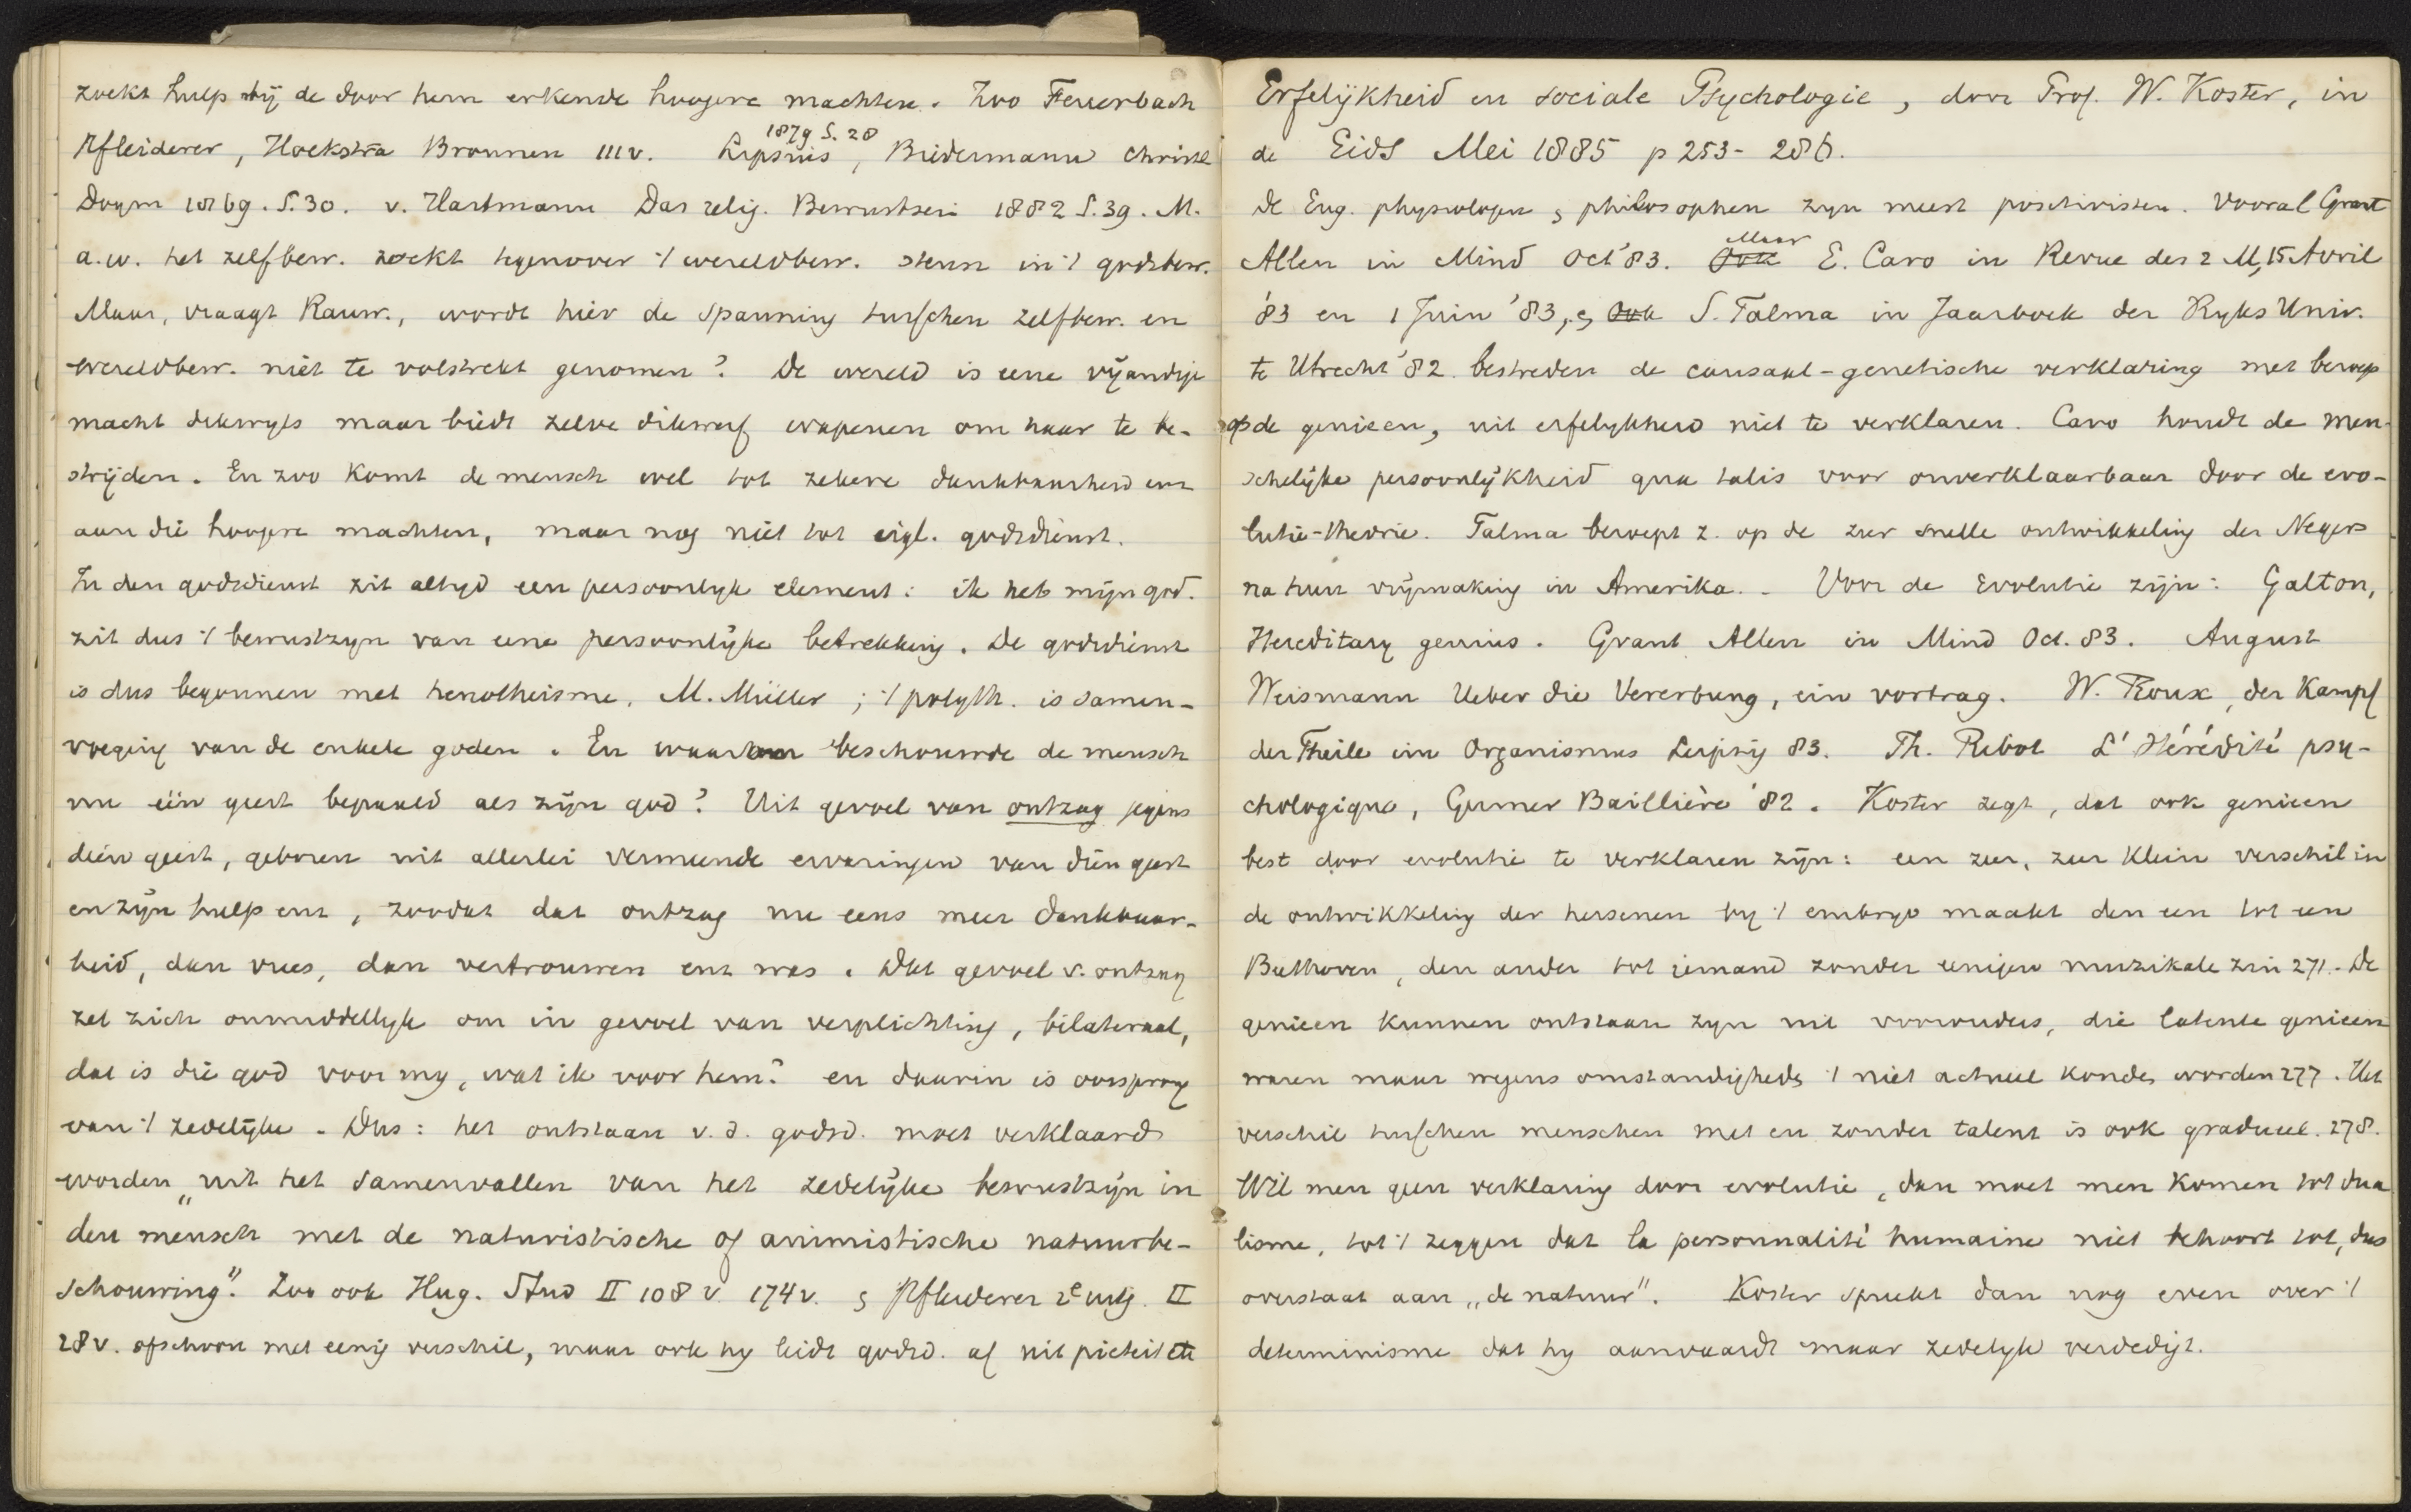 zoekt hulp bij de door hem erkende hoogere machten. Zoo Feuerbach
Pfleiderer, Hoekstra Bronnen 111 v. Lipsius 1879 S. 28, Biedermann Christl
Dogm 1869. S. 30. v. Hartmann Das relig. Bewustsein 1882 S. 39. M.
a.w. het zelfbew. zoekt tegenover 't wereldbew. steun in 't godsbew.
Maar, vraagt Rauw., wordt hier de spanning tusschen zelfbew. en
wereldbew. niet te volstrekt genomen? De wereld is eene vijandige
macht dikwyls maar biedt zelve dikwerf wapenen om haar te be-
strijden. En zoo komt de mensch wel tot zekere dankbaarheid enz
aan die hoogere machten, maar nog niet tot eigl. godsdienst.
In den godsdienst zit altyd een persoonlyk element: ik heb mijn god.
zit dus 't bewustzyn van eene persoonlijke betrekking. De godsdienst
is dus begonnen met henotheisme, M. Müller; 't polyth. is samen-
voeging van de enkele goden. En waarom beschouwde de mensch
nu één geest bepaald als zijn god? Uit gevoel van ontzag jegens
dien geest, geboren uit allerlei vermeende ervaringen van dien geest
en zijn hulp enz, zoodat dat ontzag nu eens meer dankbaar-
heid, dan vrees, dan vertrouwen enz was. Dat gevoel v. ontzag
zet zich onmiddellyk om in gevoel van verplichting, bilateraal,
dat is die god voor my, wat ik voor hem? en daarin is oorsprong
van 't zedelijke. Dus: het ontstaan v. d. godsd. moet verklaard
worden „uit het samenvallen van het zedelijke bewustzijn in
den mensch met de naturistische of animistische natuurbe-
schouwing". Zoo ook Hug. Stud II 108 v. 174 v. en Pfleiderer 2e uitg. II
28 v. ofschoon met eenig verschil, maar ook hy leidt godsd. af uit pieteit etc
Erfelijkheid en sociale Psychologie, door Prof. W. Koster, in
de Gids Mei 1885 p 253-286.
De Eng. physiologen & philosophen zyn meest positivisten. Vooral Grant
Allen in Mind Oct '83. Ook Maar E. Caro in Revue des 2 M, 15 Avril
'83 en 1 Juin '83, en ook S. Talma in Jaarboek der Ryks Univ.
te Utrecht '82. bestreden de causaal-genetische verklaring met beroep
op de genieen, uit erfelykheid niet te verklaren. Caro houdt de men-
schelijke persoonlijkheid qua talis voor onverklaarbaar door de evo-
lutie-theorie. Talma beroept z. op de zeer snelle ontwikkeling der Negers
na hun vrijmaking in Amerika. - Voor de Evolutie zijn: Galton,
Hereditary genius. Grant Allen in Mind Oct. 83. August
Weismann Ueber die Vererbung, ein vortrag. W. Roux, der Kampf
der Theile im Organismus Leipzig 83. Th. Ribot L'Hérédité psy-
chologique, Germer Baillière '82. Koster zegt, dat ook genieen
best door evolutie te verklaren zijn: een zeer, zeer klein verschil in
de ontwikkeling der hersenen by 't embryo maakt den een tot een
Beethoven, den ander tot iemand zonder eenigen muzikale zin 271. - De
genieen kunnen ontstaan zyn uit voorouders, die latente genieen
waren maar wegens omstandigheden 't niet actueel konden worden 277. Het
verschil tusschen menschen met en zonder talent is ook gradueel. 278.
Wil men geen verklaring door evolutie, dan moet men komen tot dua
lisme, tot 't zeggen dat la personnalité humaine niet behoort tot, dus
overstaat aan „de natuur". Koster spreekt dan nog even over 't
determinisme dat hy aanvaardt maar zedelyk verdedigt.